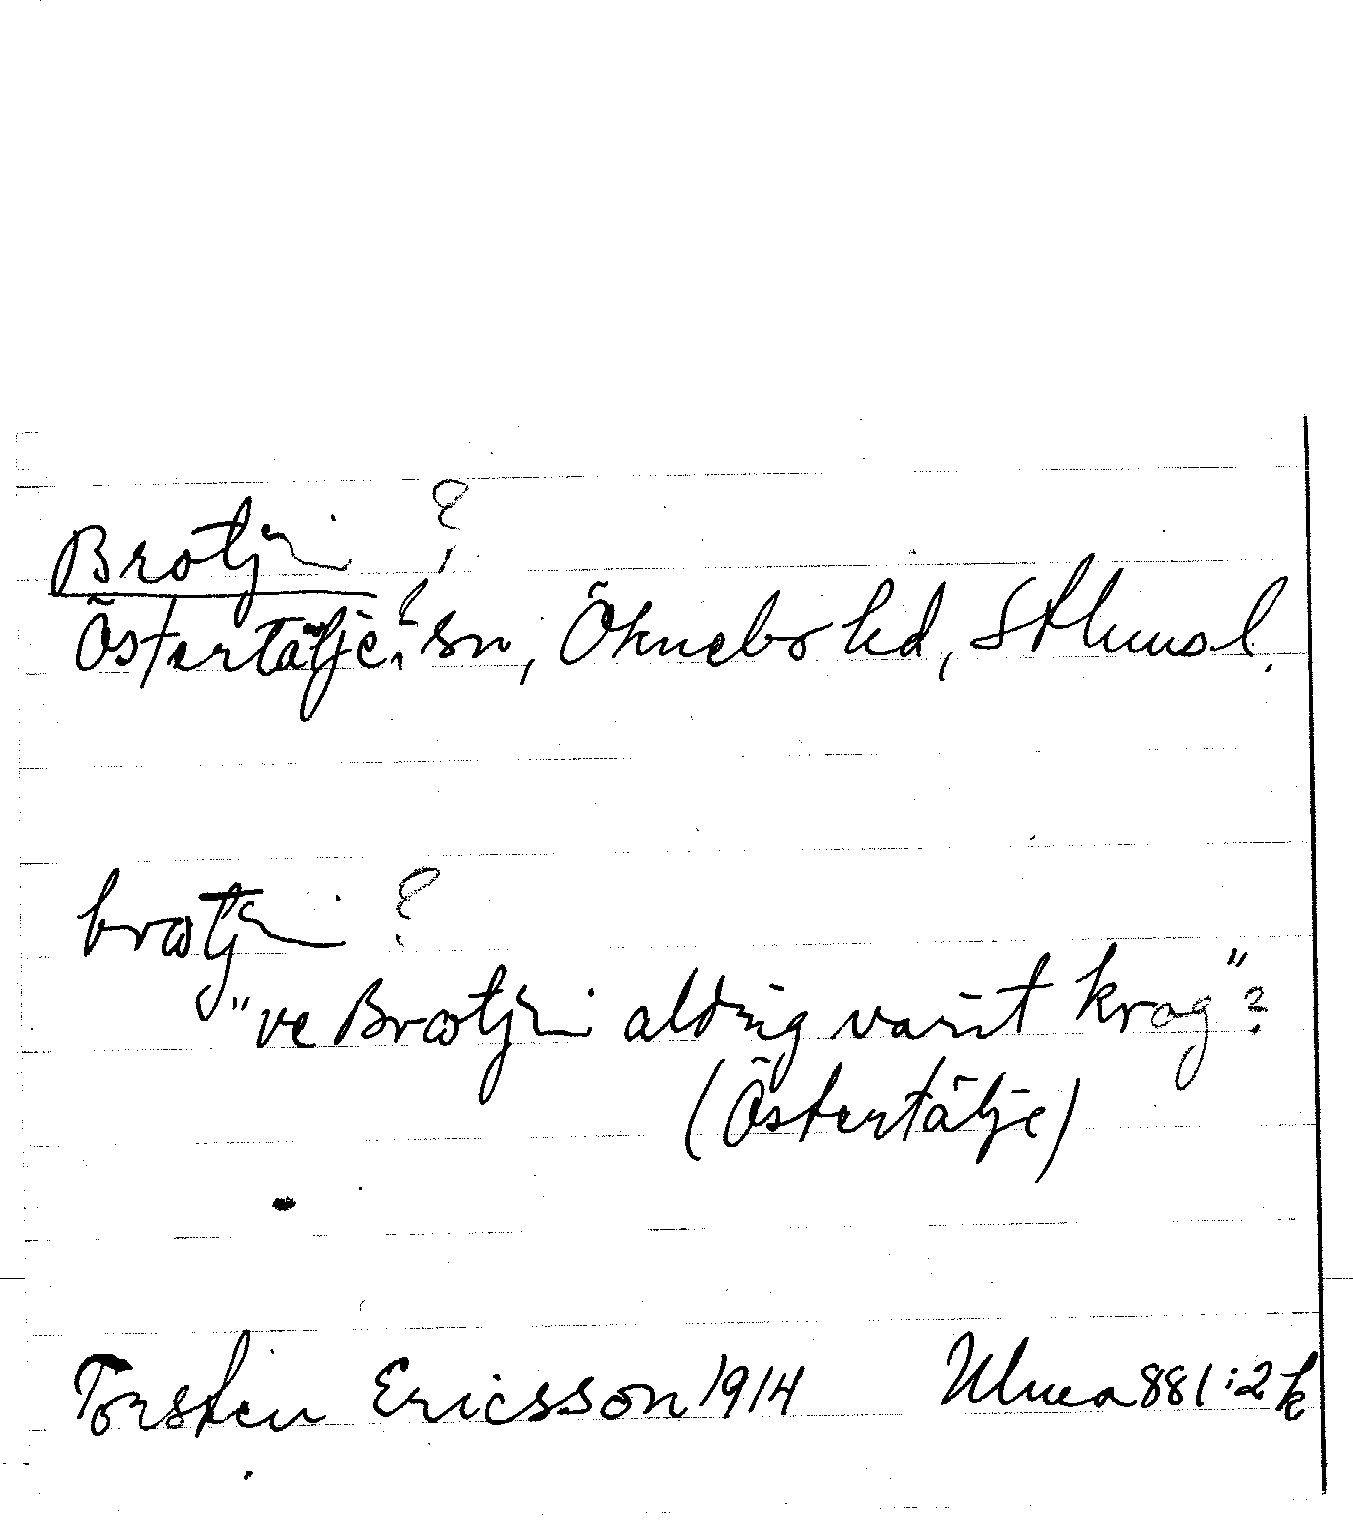 Brotjin ?
Östertälje? sn, Öknebo hd, Sthms l.
brotjin ?
"ve Brotjin aldrig varit krog"?
(Östertälje)
Torsten Ericsson 1914 Ulma 881:2 k